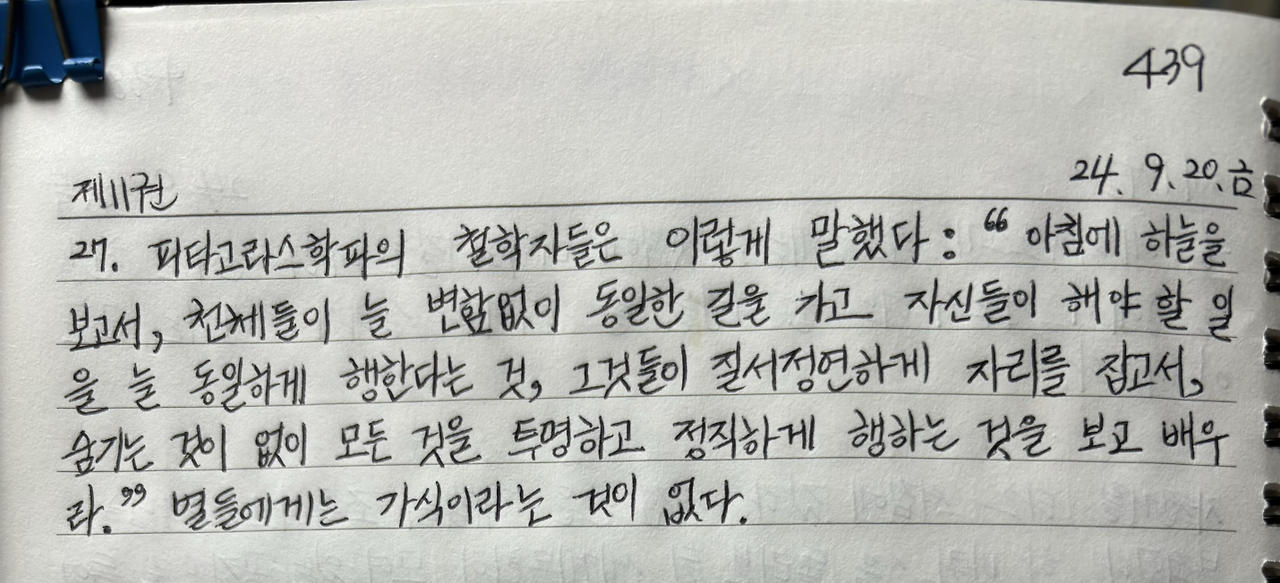 439
24. 9. 20. 금
제11권
27. 피타고라스학파의 철학자들은 이렇게 말했다: “아침에 하늘을
보고서, 천체들이 늘 변함없이 동일한 길을 가고 자신들이 해야 할 일
을 늘 동일하게 행한다는 것, 그것들이 질서정연하게 자리를 잡고서,
숨기는 것이 없이 모든 것을 투명하고 정직하게 행하는 것을 보고 배우
라.” 별들에게는 가식이라는 것이 없다.